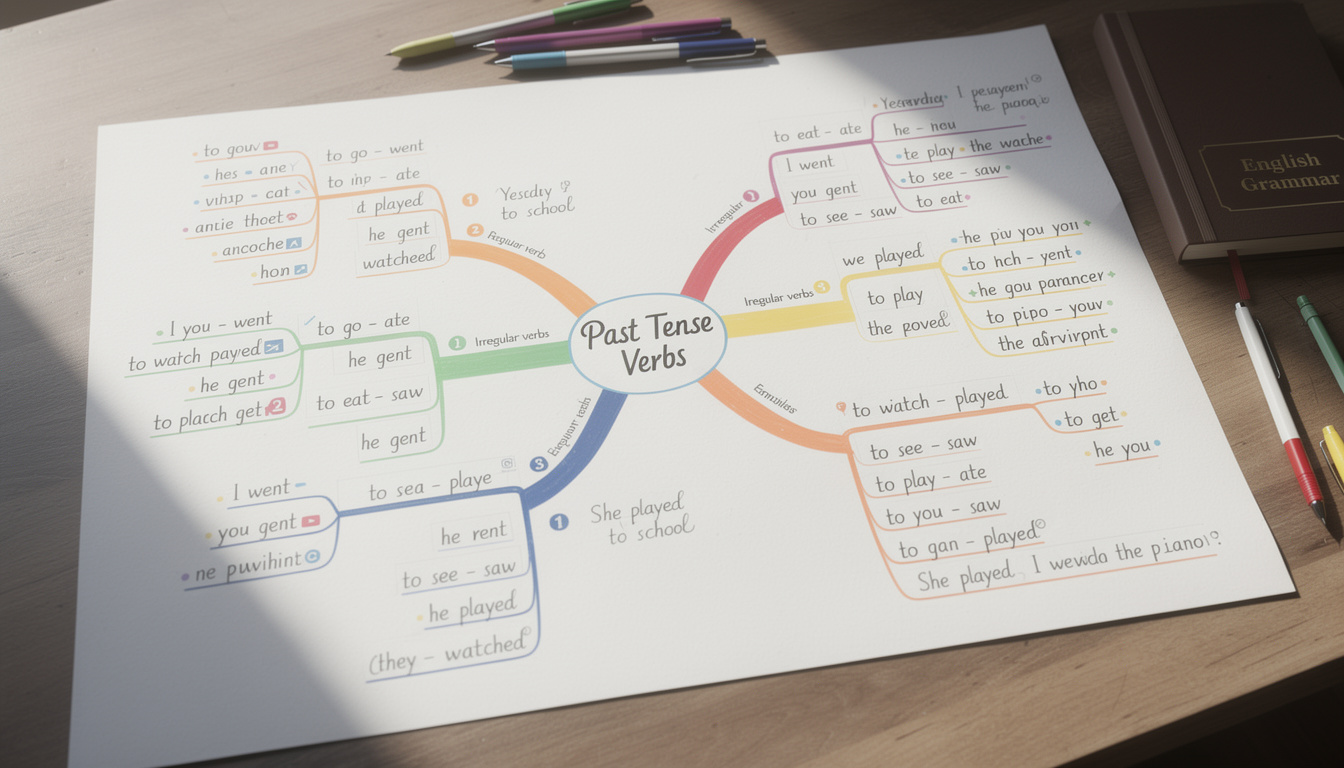 Past Tense
Verbs
to go - went
- ate
d played
he gent
watcheed
hes - ane
- cat
antie thoet
ancoche
hon
1
2
verb
to school
I you - went
to watch payed
he gent
to placch get
2
to go - ate
he gent
to eat - saw
he gent
1 Irregular verbs
I went
you gent
ne
to sea - playe
he rent
to see - saw
he played
(they - watched
3
1
She played
to school
to eat - ate
I went
you gent
to see - saw
Irregular
I
he
he - nou
te play the wache
to see - saw
to eat
Irregular verbs 3
we played
to play
the poved
he piu you you
to hch - yent
he gou parancer
to pipo - youv
the
to watch - played
to see - saw
to play - ate
to you - saw
to gan - played
She played I the piano?
to yho
to get
he you
English
Grammar